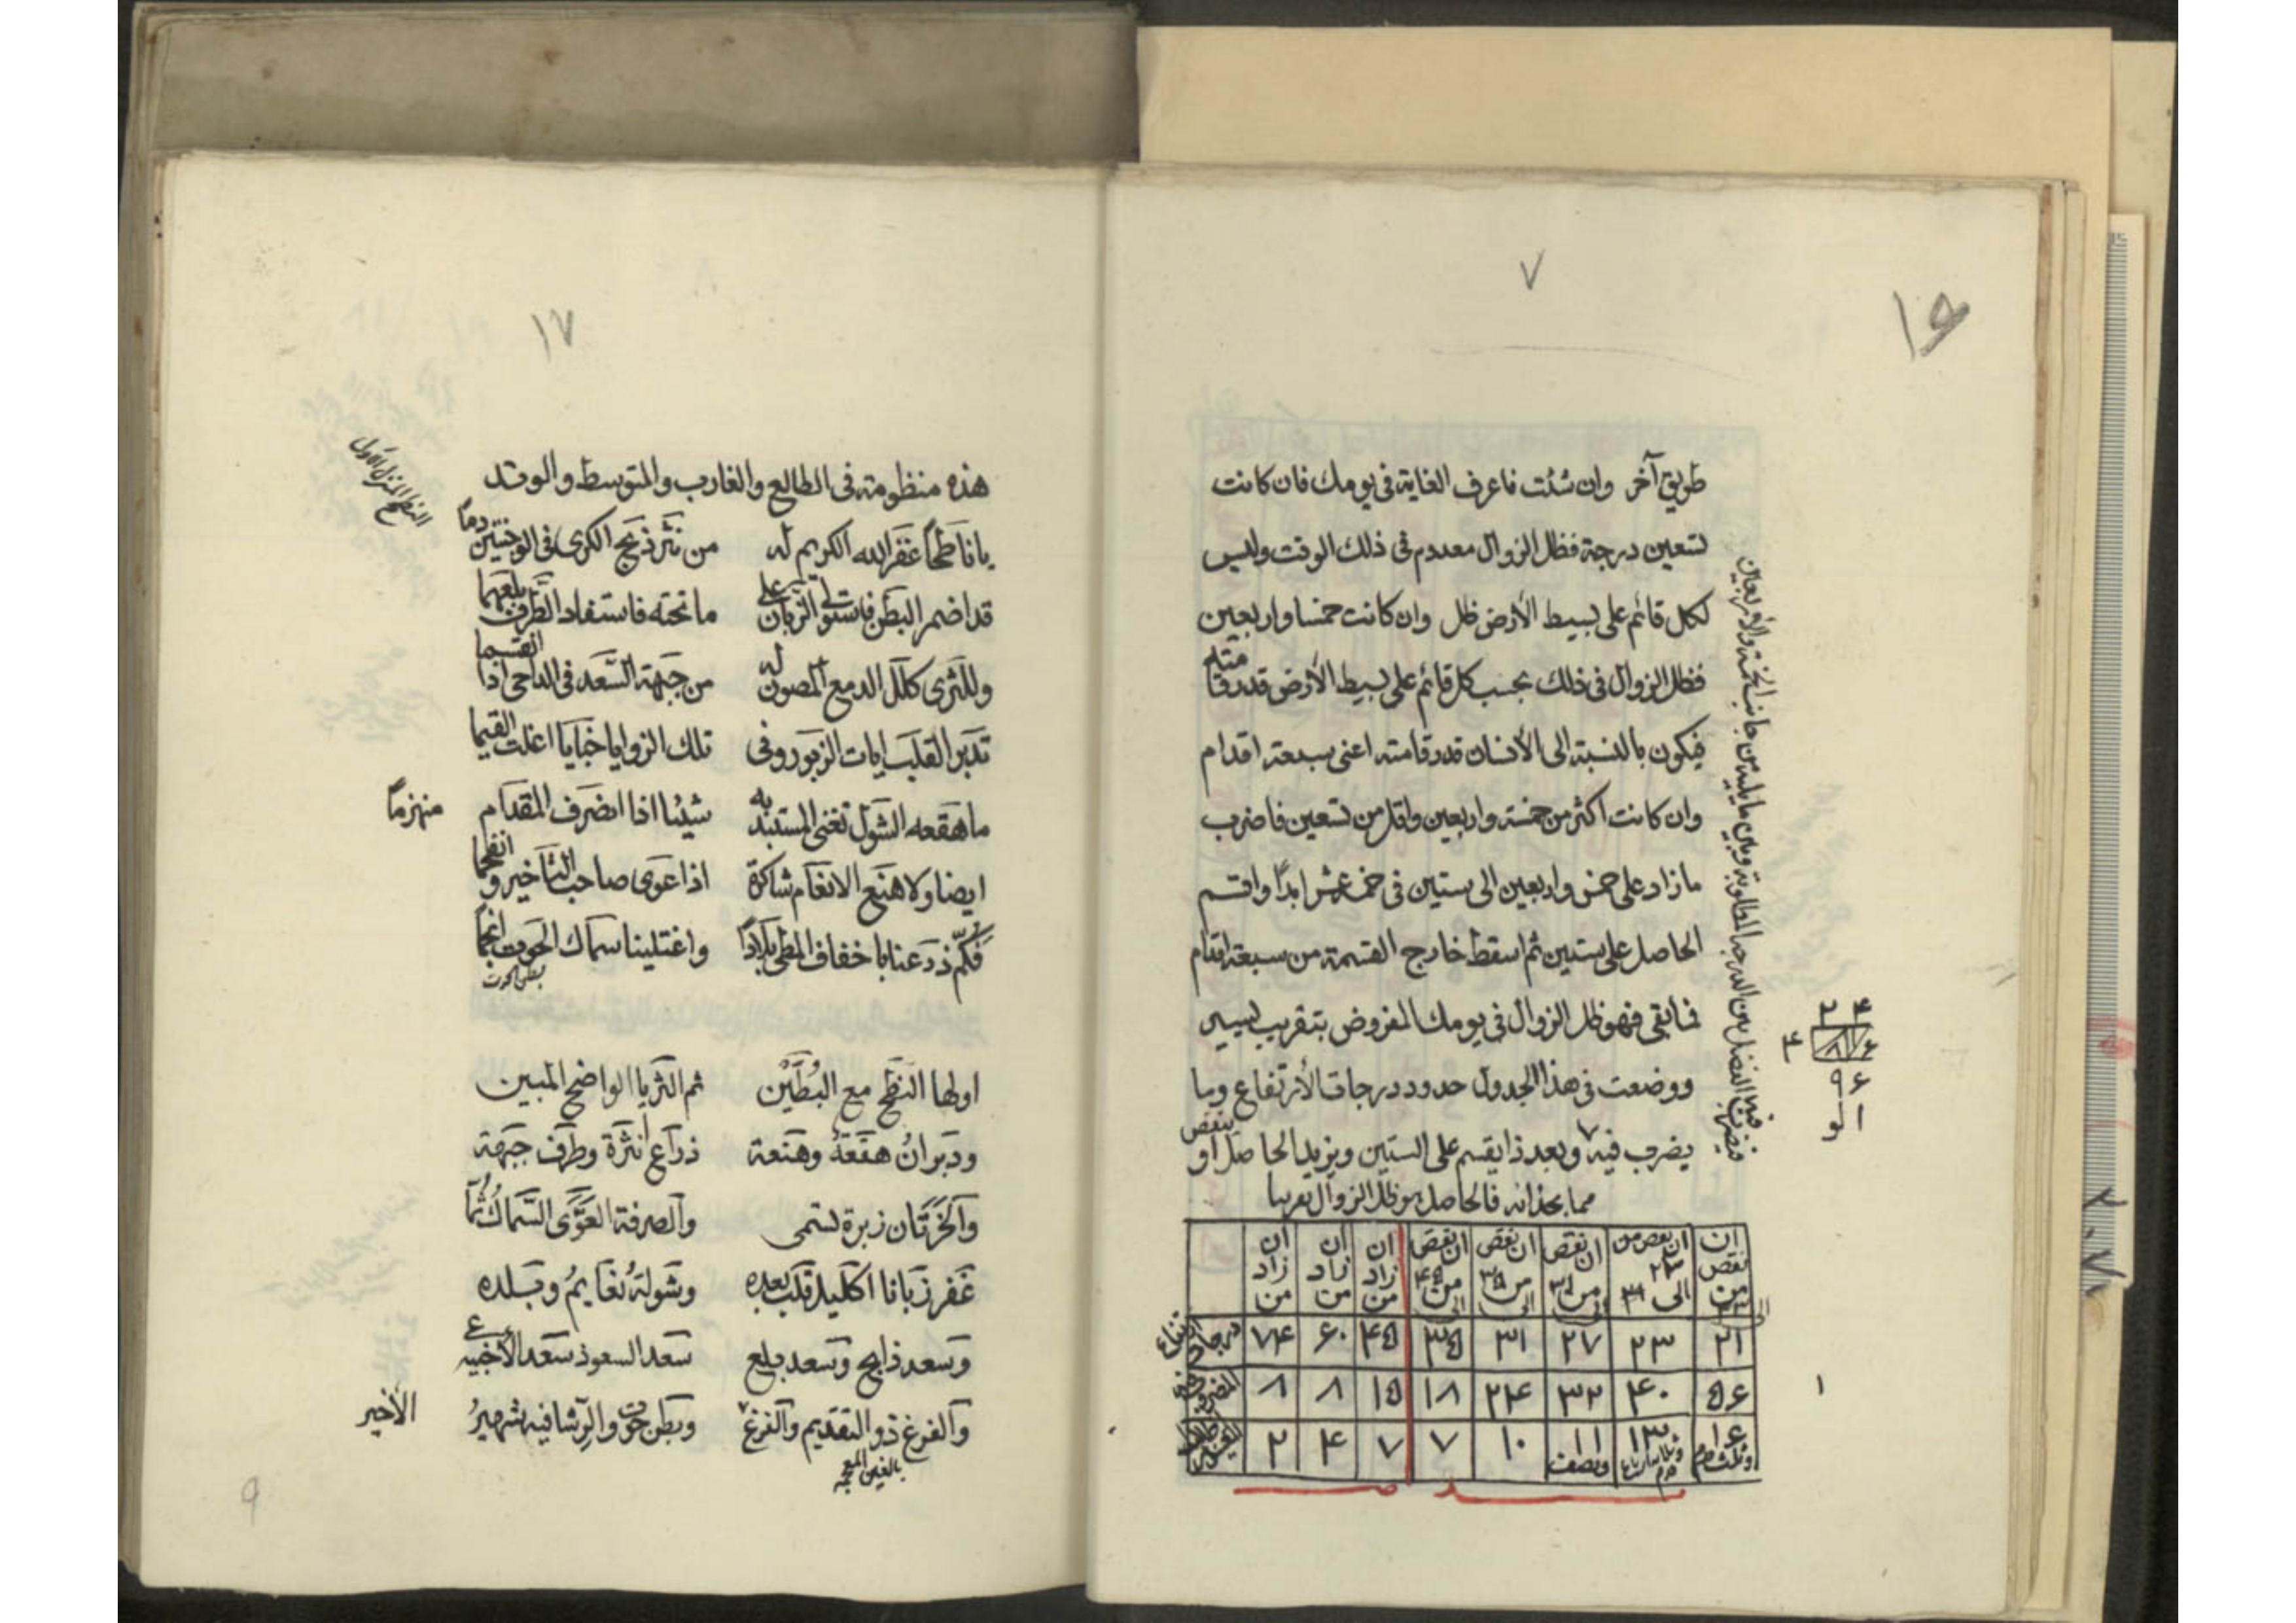 ٧
١٦
طريق آخر وان شئت فاعرف الغاية فى يومك فان كانت
تسعين درجة فظل الزوال معدوم فى ذلك الوقت وليس
لكل قائم على بسيط الأرض ظل وان كانت خمسا واربعين
فظل الزوال فى ذلك بحسب كل قائم على بسيط الأرض قدر قامته
فيكون بالنسبة الى الأنسان قدر قامته اعنى سبعة اقدام
وان كانت اكثر من خمسة واربعين واقل من تسعين فاضرب
ما زاد على خمس واربعين الى ستين فى خمسة عشر ابدًا واقسم
الحاصل على ستين ثم اسقط خارج القسمة من سبعة اقدام
فما بقى فهو ظل الزوال فى يومك المفروض بتقريب يسير
ووضعت فى هذا الجدول حدود درجات الأرتفاع وما
يضرب فيه وبعد ذا يقسم على الستين ويزيد الحاصل او ينقص
مما بحذائه فالحاصل هو ظل الزوال تقريبا
٢ ٤
٤ ٨ ٦
٩ ٦
ان نقص من ان نقص من ٢٣ الى ٣١ ان نقص من ٣١ ان نقص من ٣٥ الى ان نقص من ٤٥ الى ان زاد من ان زاد من ان زاد من
٢١ ٢٣ ٢٧ ٣١ ٣٥ ٤٥ ٦٠ ٧٤ درجات
٥٦ ٤٠ ٣٢ ٢٤ ١٨ ١٥ ٨ ٨
١٦ ١٣ ١١ ونصف ١٠ ٧ ٧ ٤ ٢
١
١٧
هذه منظومة فى الطالع والغارب والمتوسط والوتد
يا ناطحًا غفر الله الكريم له من نثر ذبح الكرى فى الوجنتين دمًا
قد اضمر البطن فاستولى الزبان على ما تحته فاستفاد الطرف بلعهما
وللثرى كلل الدمع المصون له من جبهة السعد فى الداجى اذا انقسما
تدبر القلب ايات الزبور وفى تلك الزوايا خبايا اغلت القيما
ما هقعه الشول تغنى المستبد به شيئا اذا انصرف المقدام منهزمًا
ايضا ولا هنع الانعام شاكرة اذا عوى صاحب التأخير و
فكم ذرعنا باخفاف المطى بلادًا واغتلينا سماك الحوت
بطن الحوت
اولها النطح مع البطين ثم الثريا الواضح المبين
ودبران هقعة وهنعة ذراع نثرة وطرف جبهة
والخرتان زبرة تسمى والصرفة العوى السماك ثما
غفر زبانا اكليل قلب بعده وشولة نعايم وبلده
وسعد ذابح وسعد بلع سعد السعود سعد الأخبيه ع
والفرغ ذو التقديم والفرغ الأخير وبطن حوت والرشا فيه شهير
بالغين المعجمه
٩